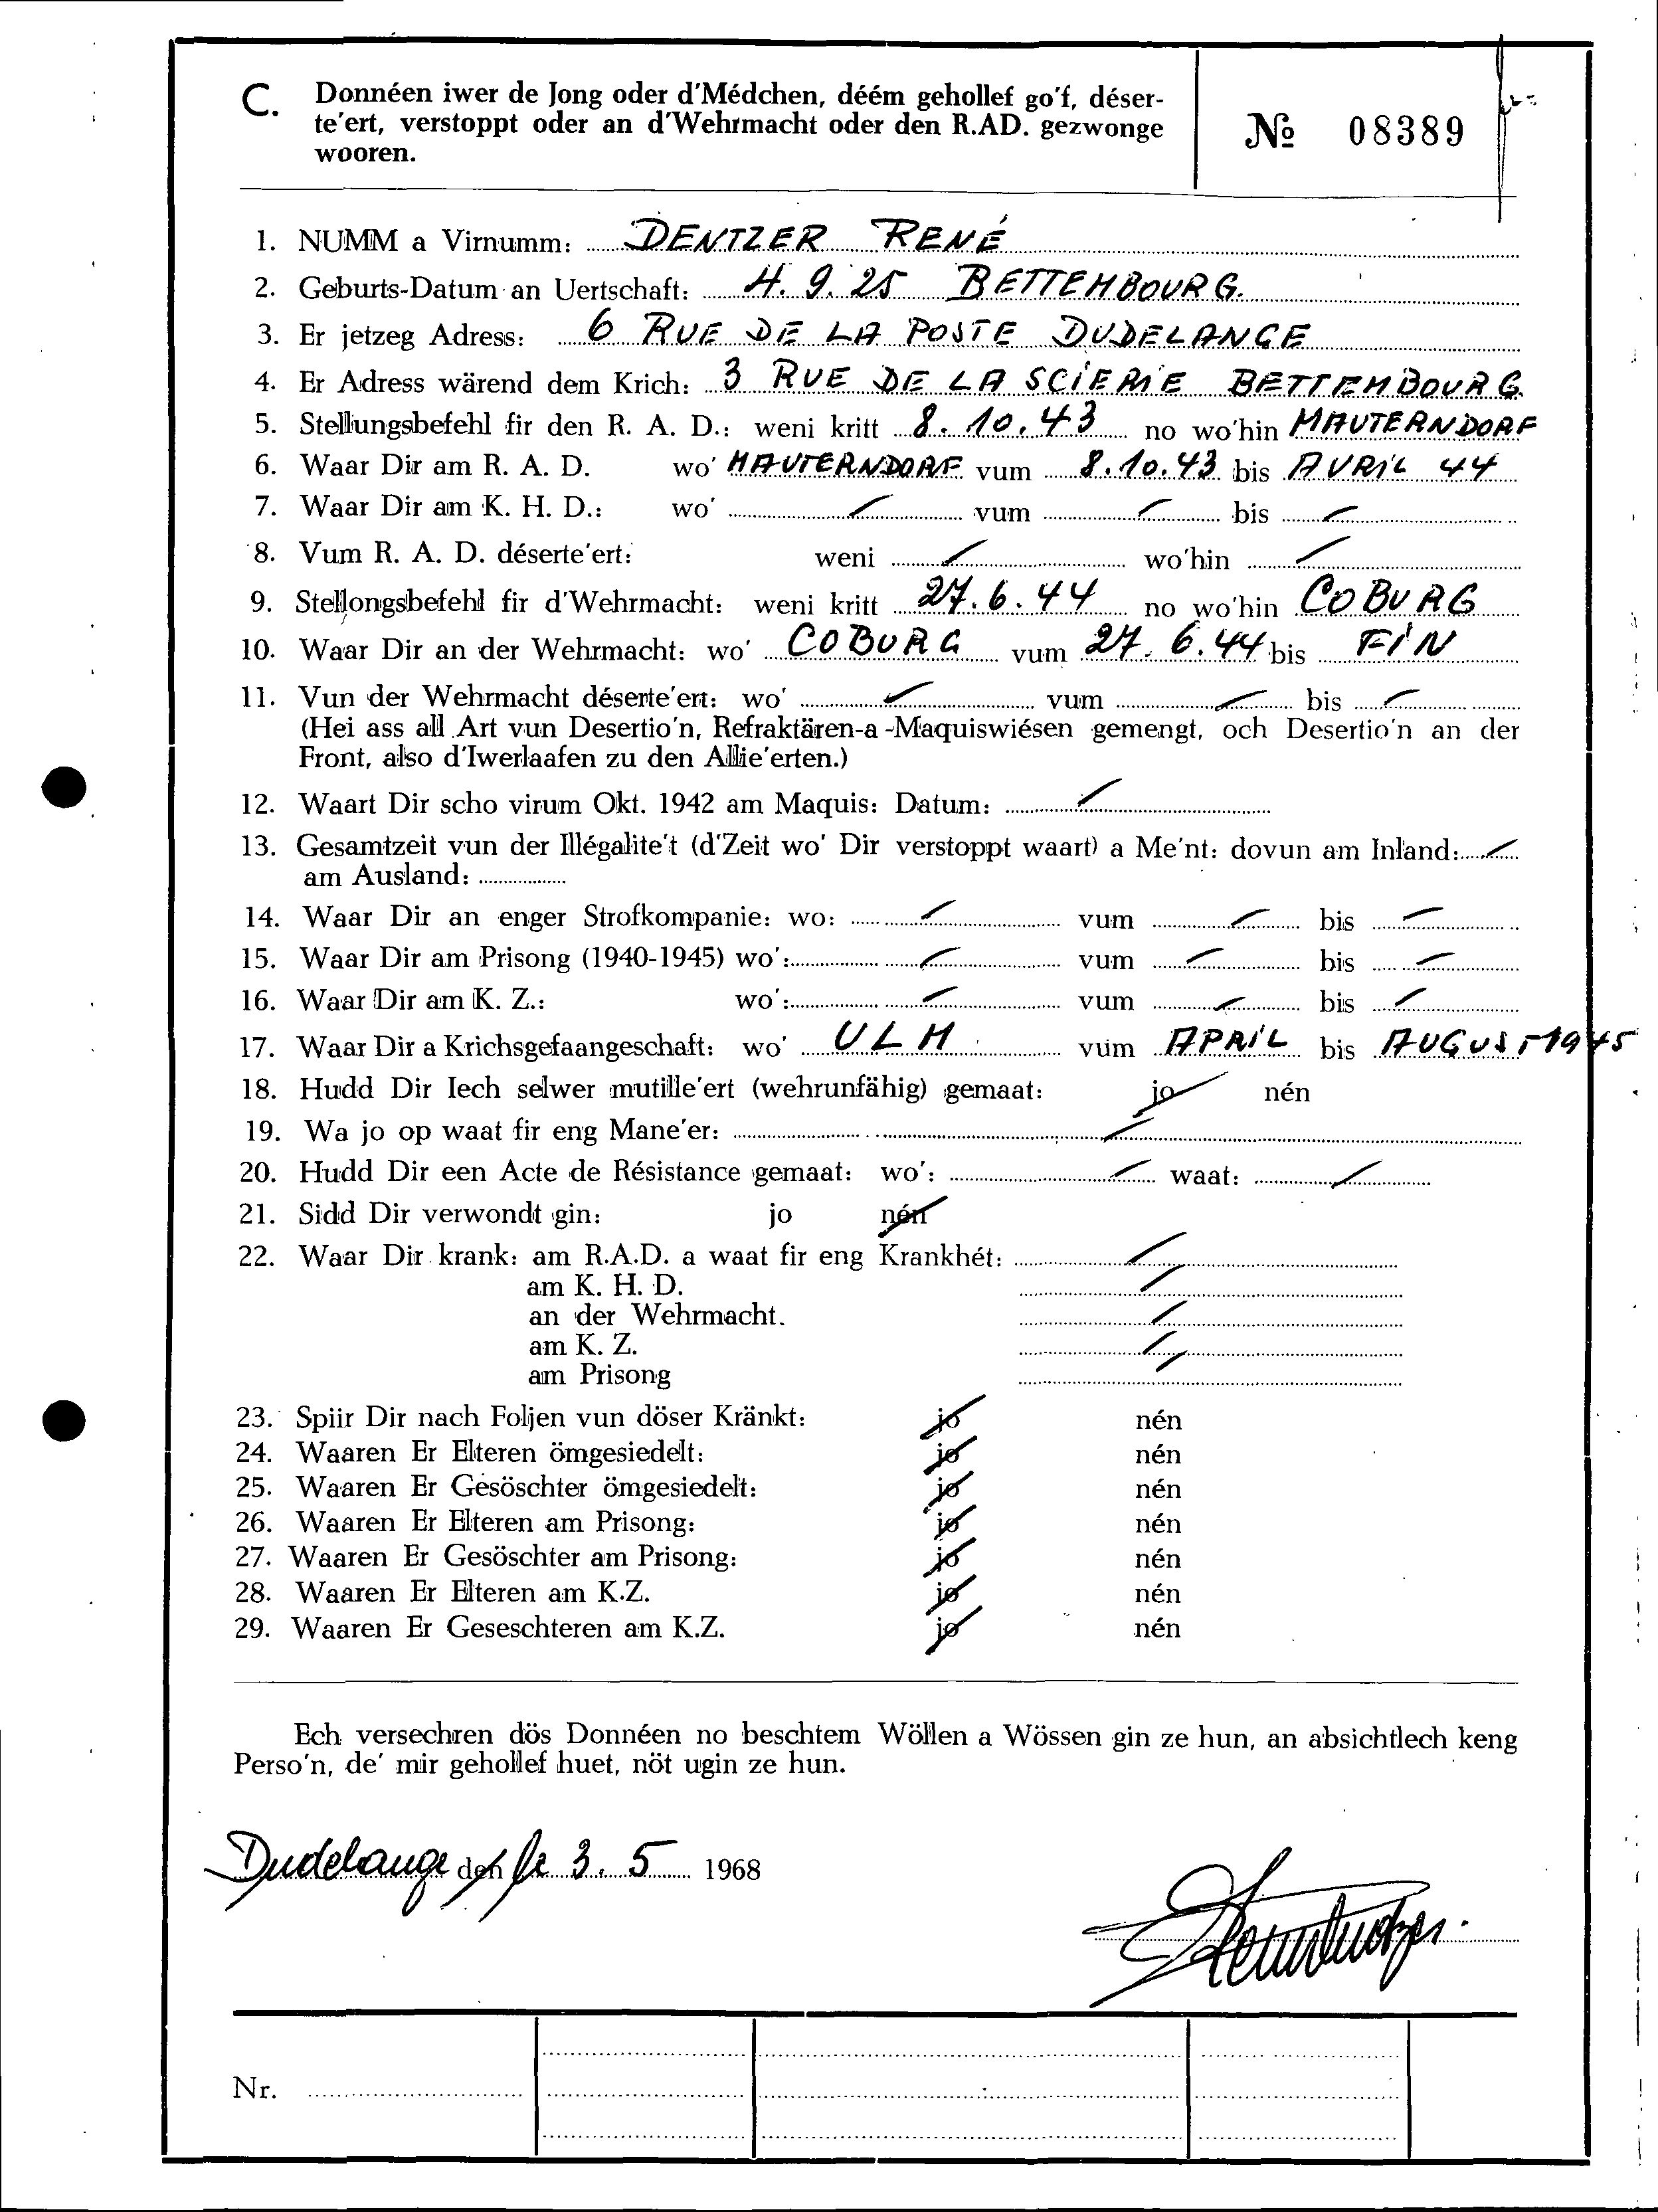 C. Donnéen iwer de Jong oder d'Médchen, déém gehollef go'f, déser-
te'ert, verstoppt oder an d'Wehrmacht oder den R.AD. gezwonge
wooren.
№ 08389
1. NUMM a Virnumm: DENTZER RENÉ
2. Geburts-Datum an Uertschaft: 4. 9. 25 BETTEMBOURG.
3. Er jetzeg Adress: 6 RUE DE LA POSTE DUDELANGE
4. Er Adress wärend dem Krich: 3 RUE DE LA SCIERIE BETTEMBOURG.
5. Stellungsbefehl fir den R. A. D.: weni kritt 8. 10. 43 no wo'hin MAUTERNDORF
6. Waar Dir am R. A. D. wo' MAUTERNDORF vum 8.10.43 bis AVRIL 44
7. Waar Dir am K. H. D.: wo' vum bis
8. Vum R. A. D. déserte'ert: weni wo'hin
9. Stellongsbefehl fir d'Wehrmacht: weni kritt 27. 6. 44 no wo'hin COBURG
10. Waar Dir an der Wehrmacht: wo' COBURG vum 27. 6. 44 bis FIN
11. Vun der Wehrmacht déserte'ert: wo' vum bis
(Hei ass all Art vun Desertio'n, Refraktären-a-Maquiswiésen gemengt, och Desertio'n an der
Front, also d'Iwerlaafen zu den Allie'erten.)
12. Waart Dir scho virum Okt. 1942 am Maquis: Datum:
13. Gesamtzeit vun der Illégalite't (d'Zeit wo' Dir verstoppt waart) a Me'nt: dovun am Inland:
am Ausland:
14. Waar Dir an enger Strofkompanie: wo: vum bis
15. Waar Dir am Prisong (1940-1945) wo': vum bis
16. Waar Dir am K. Z.: wo': vum bis
17. Waar Dir a Krichsgefaangeschaft: wo' ULM vum APRIL bis AUGUST 1945
18. Hudd Dir Iech selwer mutille'ert (wehrunfähig) gemaat: jo nén
19. Wa jo op waat fir eng Mane'er:
20. Hudd Dir een Acte de Résistance gemaat: wo': waat:
21. Sidd Dir verwondt gin: jo nén
22. Waar Dir krank: am R.A.D. a waat fir eng Krankhét:
am K. H. D.
an der Wehrmacht.
am K. Z.
am Prisong
23. Spiir Dir nach Foljen vun döser Kränkt: jo nén
24. Waaren Er Elteren ömgesiedelt: jo nén
25. Waaren Er Gesöschter ömgesiedelt: jo nén
26. Waaren Er Elteren am Prisong: jo nén
27. Waaren Er Gesöschter am Prisong: jo nén
28. Waaren Er Elteren am K.Z. jo nén
29. Waaren Er Geseschteren am K.Z. jo nén
Ech versechren dös Donnéen no beschtem Wöllen a Wössen gin ze hun, an absichtlech keng
Perso'n, de' mir gehollef huet, nöt ugin ze hun.
Dudelange den le 3. 5 1968
Nr.